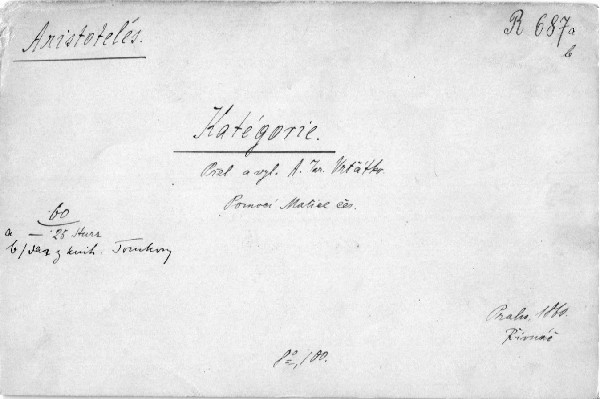 Aristotelés.
R 687a
b
Katégorie.
Přel. a vyl. A. Jar. Vrťátko.
Pomocí Matice čes.
60
a — 25 Hurz
b/ dar z knih. Tomkovy
Praha, 1860.
Řivnáč
8°, 100.